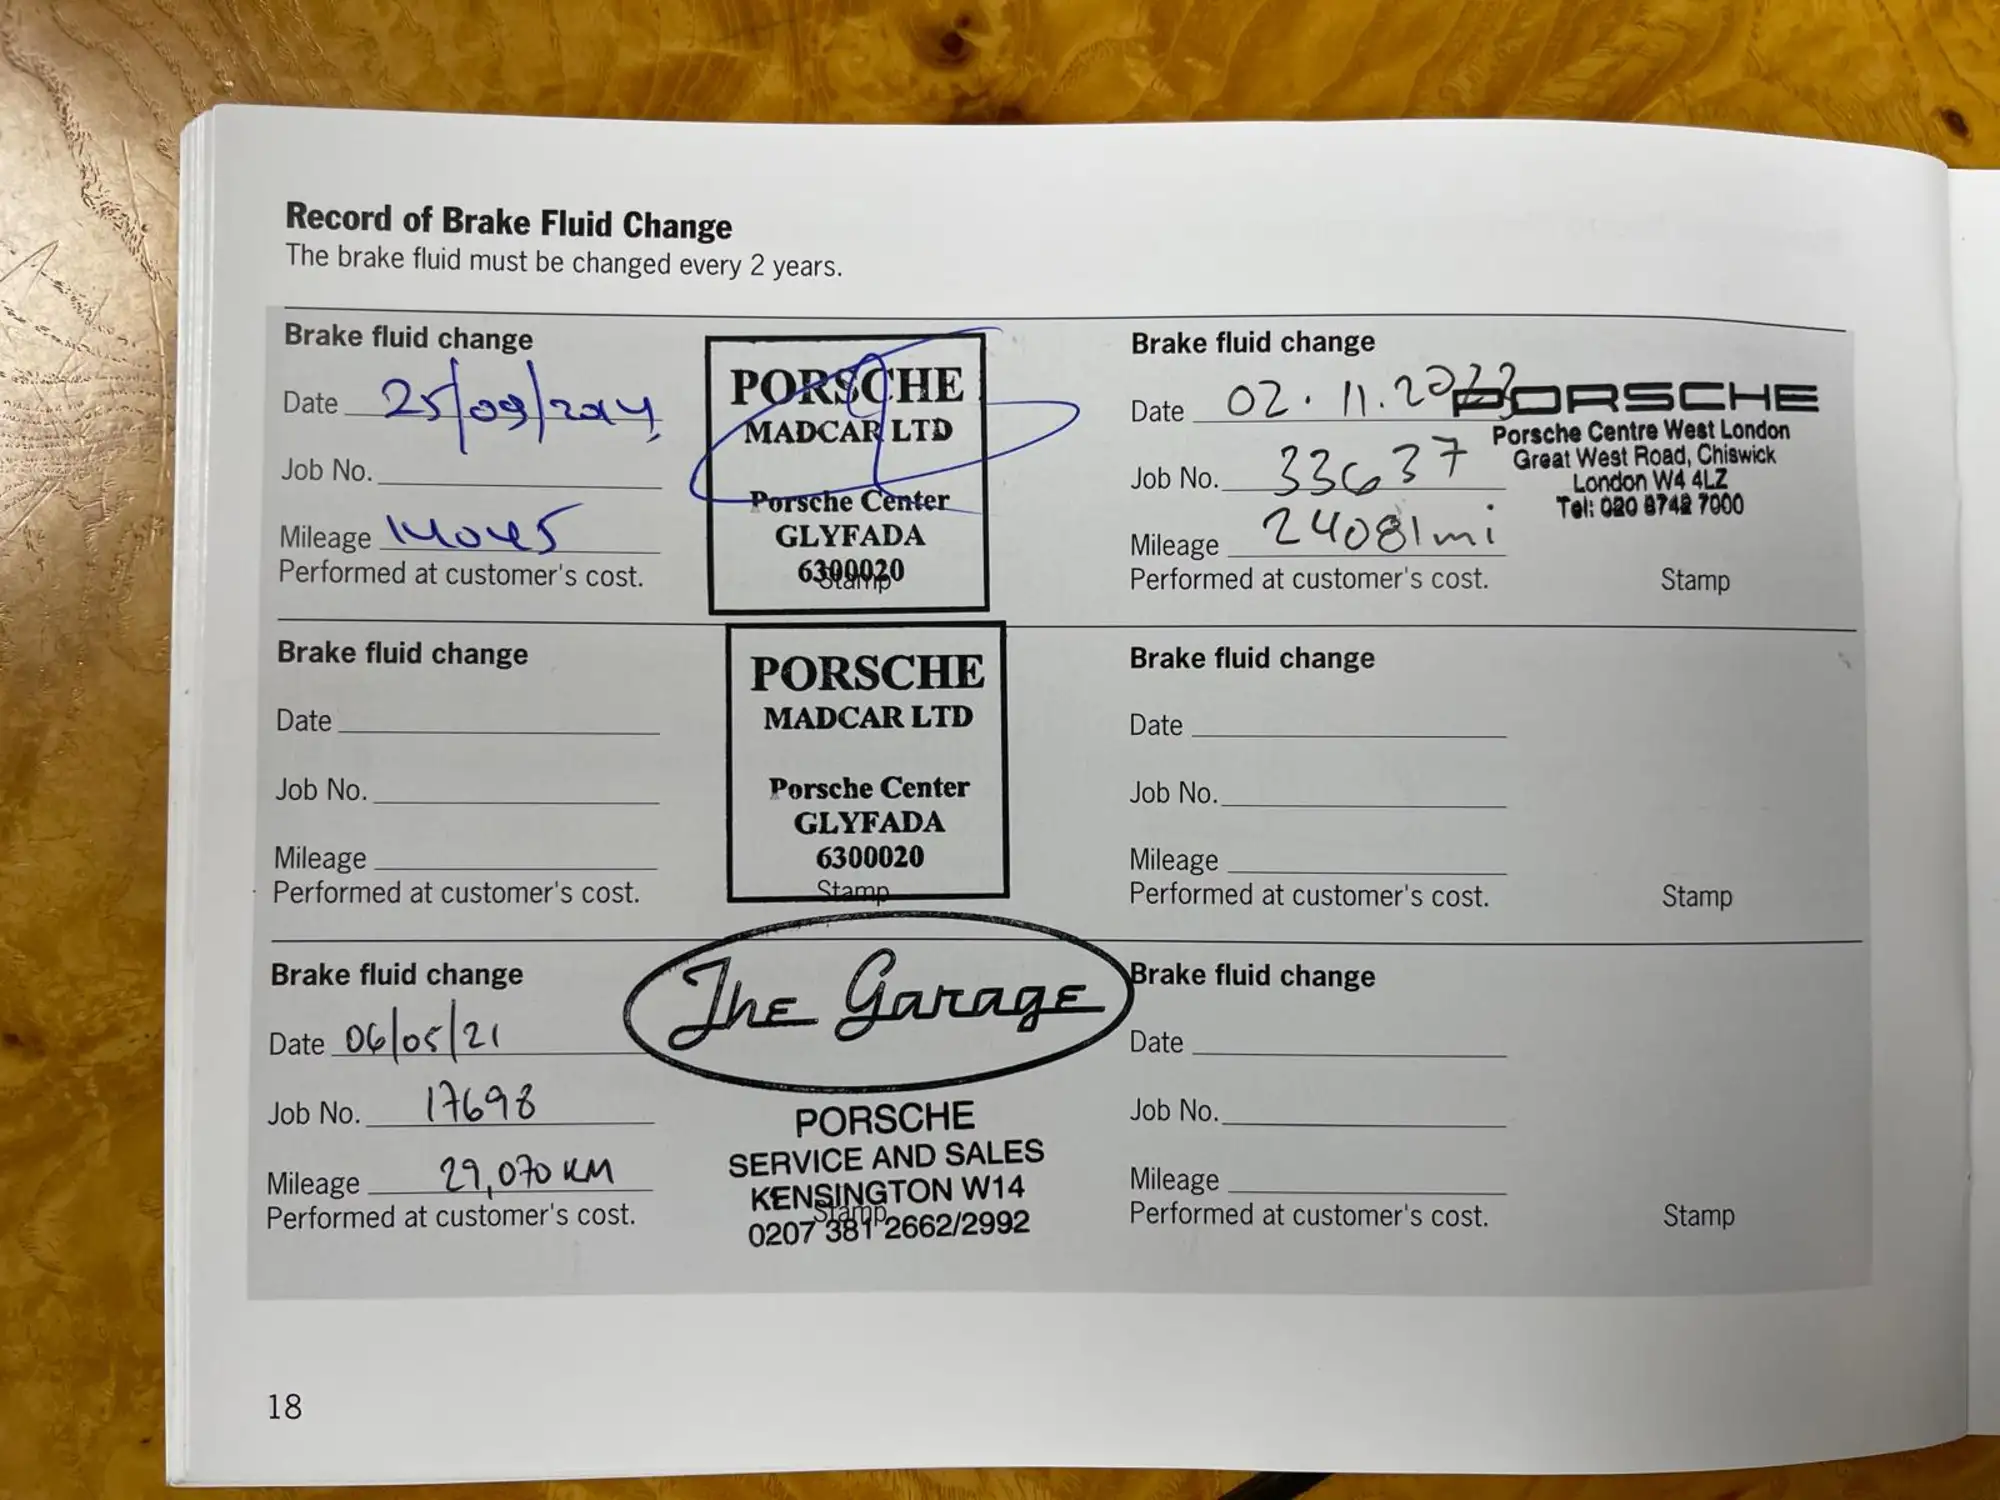 Record of Brake Fluid Change
The brake fluid must be changed every 2 years.
Brake fluid change
Date 25/09/2014
Job No.
Mileage 14045
Performed at customer's cost.
PORSCHE
MADCAR LTD
Porsche Center
GLYFADA
6300020
Stamp
Brake fluid change
Date
Job No.
Mileage
Performed at customer's cost.
PORSCHE
MADCAR LTD
Porsche Center
GLYFADA
6300020
Stamp
Brake fluid change
Date 06/05/21
Job No. 17698
Mileage 29,070 KM
Performed at customer's cost.
The Garage
PORSCHE
SERVICE AND SALES
KENSINGTON W14
0207 381 2662/2992
Stamp
Brake fluid change
Date 02.11.2023
Job No. 33637
Mileage 24081mi
Performed at customer's cost.
PORSCHE
Porsche Centre West London
Great West Road, Chiswick
London W4 4LZ
Tel: 020 8742 7000
Stamp
Brake fluid change
Date
Job No.
Mileage
Performed at customer's cost.
Stamp
Brake fluid change
Date
Job No.
Mileage
Performed at customer's cost.
Stamp
18